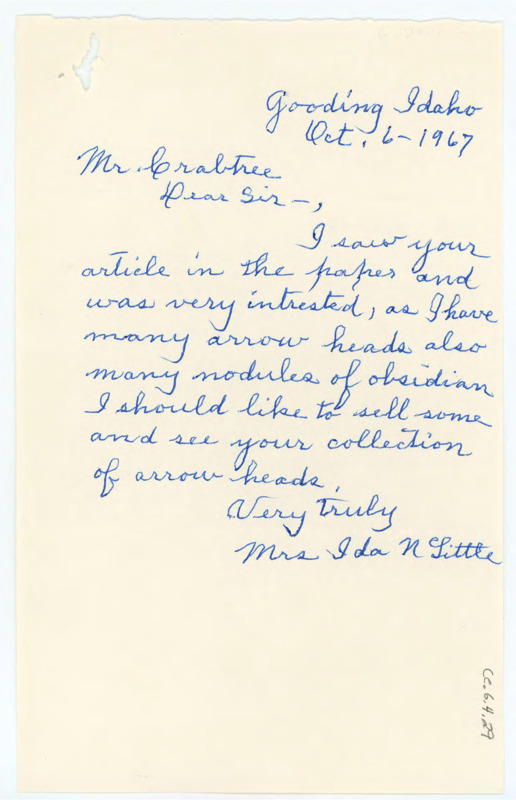 Gooding Idaho
Oct. 6-1967
Mr. Crabtree
Dear Sir-,
I saw your
article in the paper and
was very intrested, as I have
many arrow heads also
many nodules of obsidian
I should like to sell some
and see your collection
of arrow heads.
Very truly
Mrs Ida N Little
Cc.6.4.29